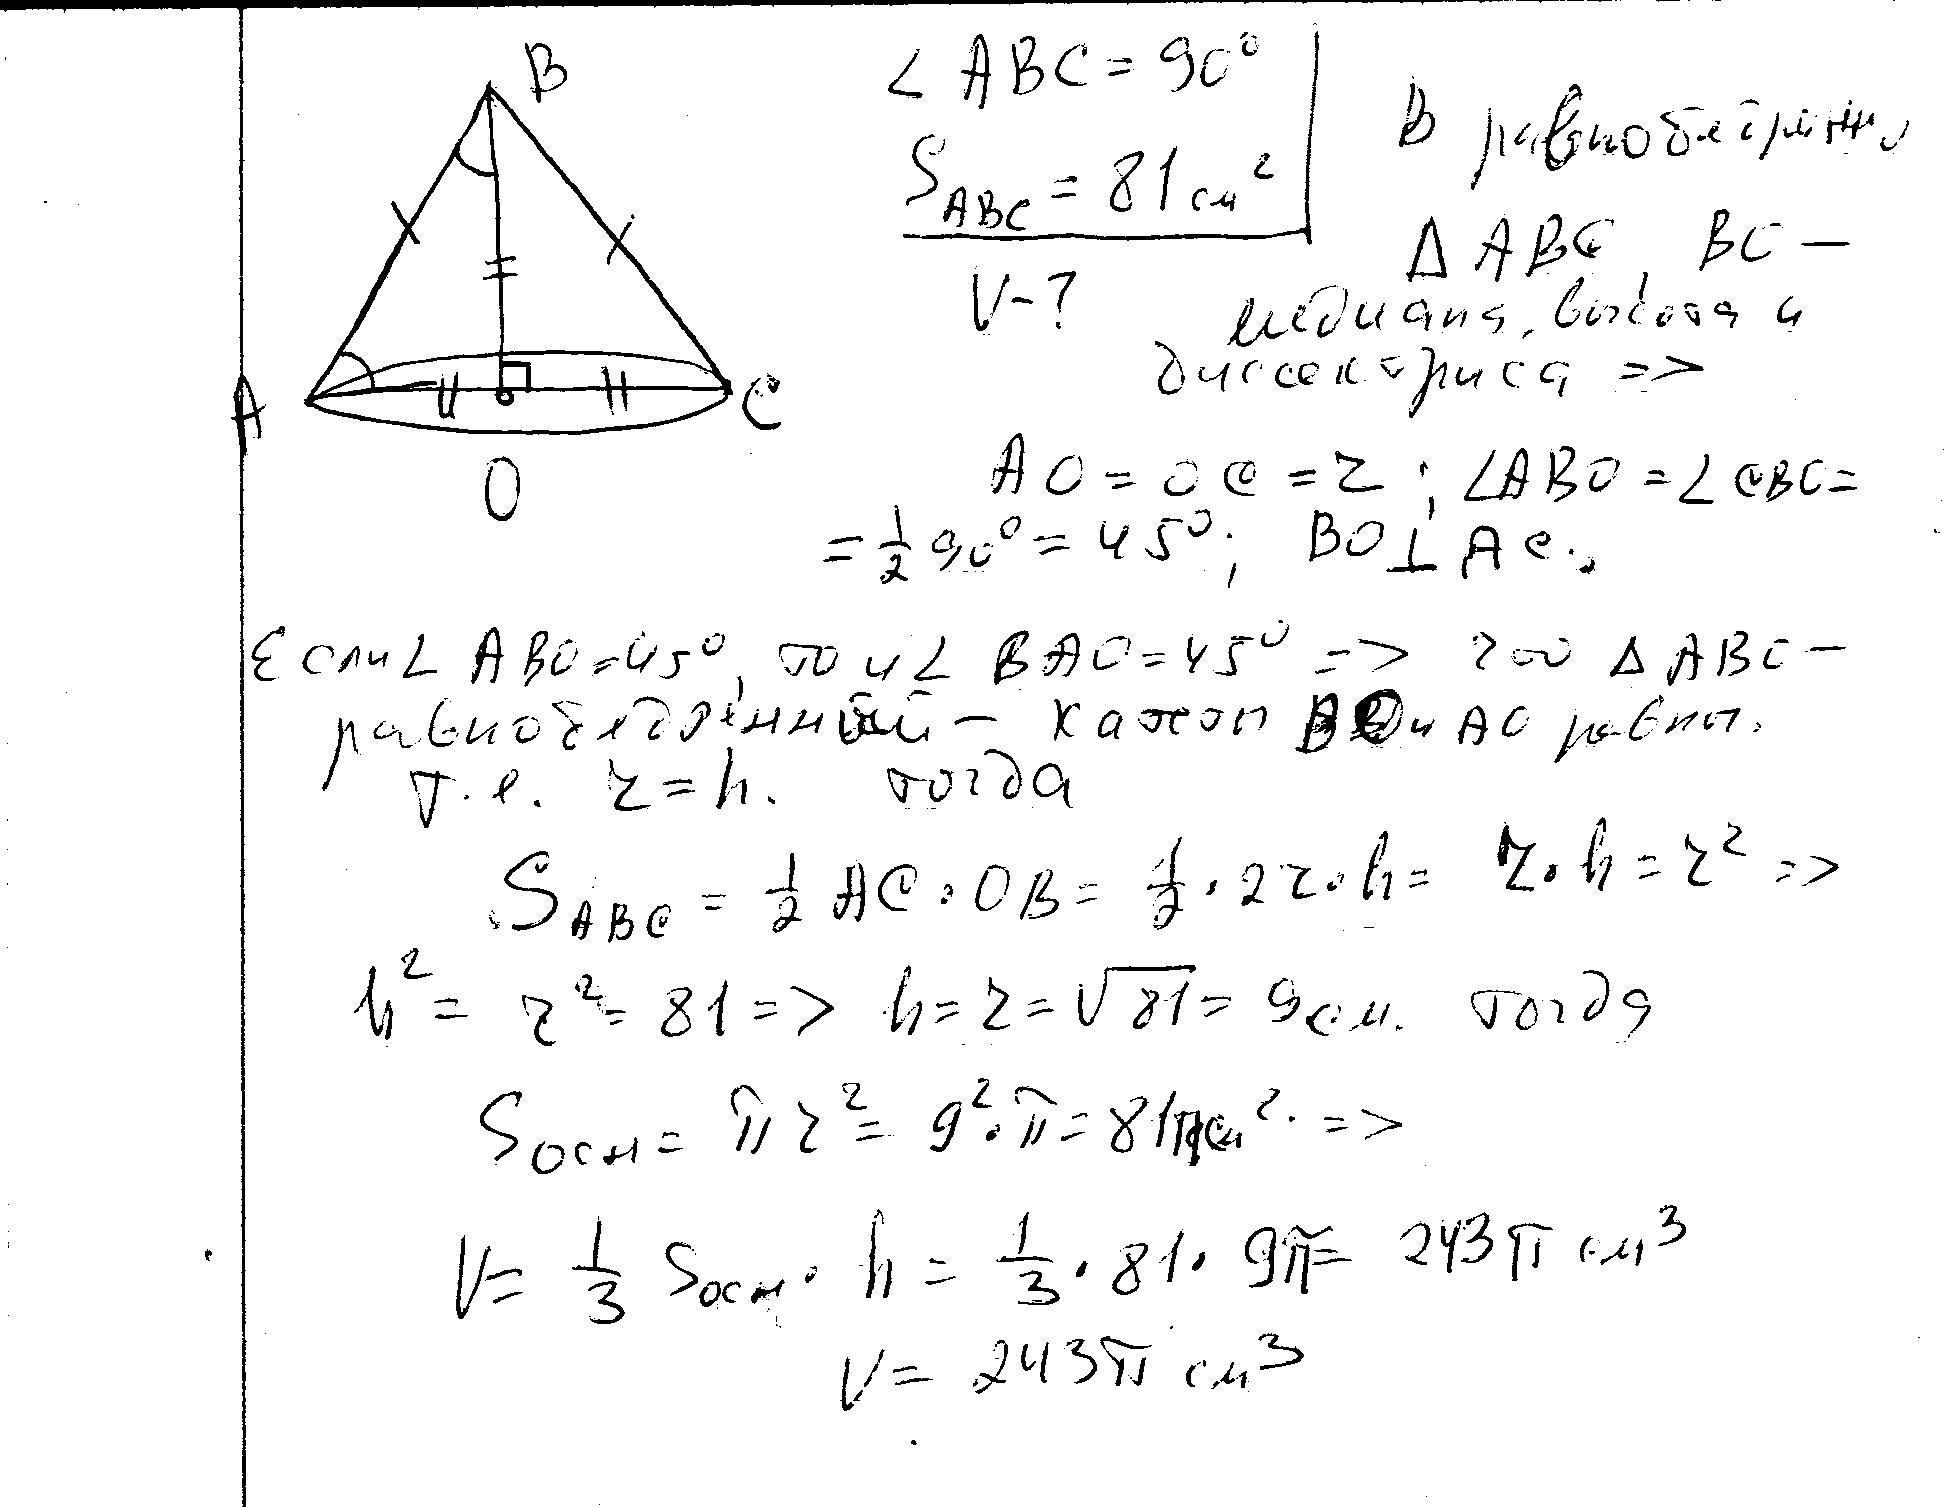 B
A
C
O
∠ ABC = 90°
S_ABC = 81 см²
V - ?
В равнобедренн.
Δ ABC, BC —
медиана, высота и
биссектриса =>
AO = OC = r ; ∠ABO = ∠CBO =
= 1/2 90° = 45°; BO ⊥ AC.,
Если ∠ ABO = 45°, то и ∠ BAO = 45° => Δ ABC —
равнобедренный — катеты BO и AO равны.
т.е. r = h. тогда
S_ABC = 1/2 AC · OB = 1/2 · 2r · h = r · h = r² =>
h² = r² = 81 => h = r = √81 = 9 см. тогда
S осн = πr² = 9² · π = 81π см². =>
V = 1/3 S осн · h = 1/3 · 81 · 9π = 243π см³
V = 243π см³